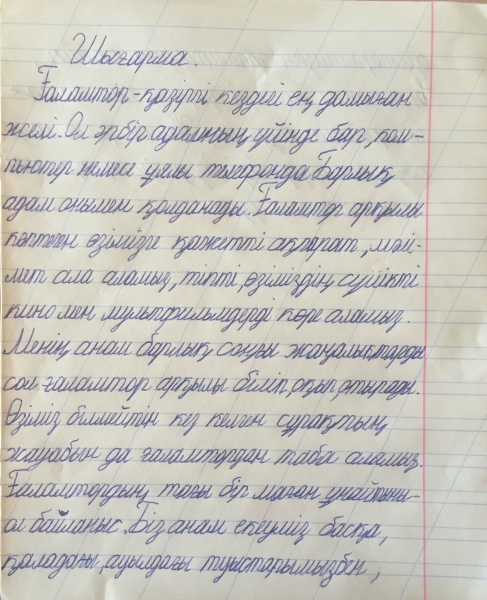 Шығарма.
Ғаламтор-қазіргі кездегі ең дамыған
желі. Ол әрбір адамның үйінде бар, ком-
пьютер немесе ұялы телефонда. Барлық
адам онымен қолданады. Ғаламтор арқылы
көптеген өзімізге қажетті ақпарат, мәлі-
мет ала аламыз, тіпті, өзіміздің сүйікті
кино мен мультфильмдерді көре аламыз.
Менің анам барлық соңғы жаңалықтарды
сол ғаламтор арқылы біліп, оқып отырады.
Өзіміз білмейтін кез келген сұрақтың
жауабын да ғаламтордан таба аламыз.
Ғаламтордың тағы бір маған ұнайтыны-
ол байланыс. Біз анам екеуміз басқа,
қаладағы, ауылдағы туыстарымызбен,